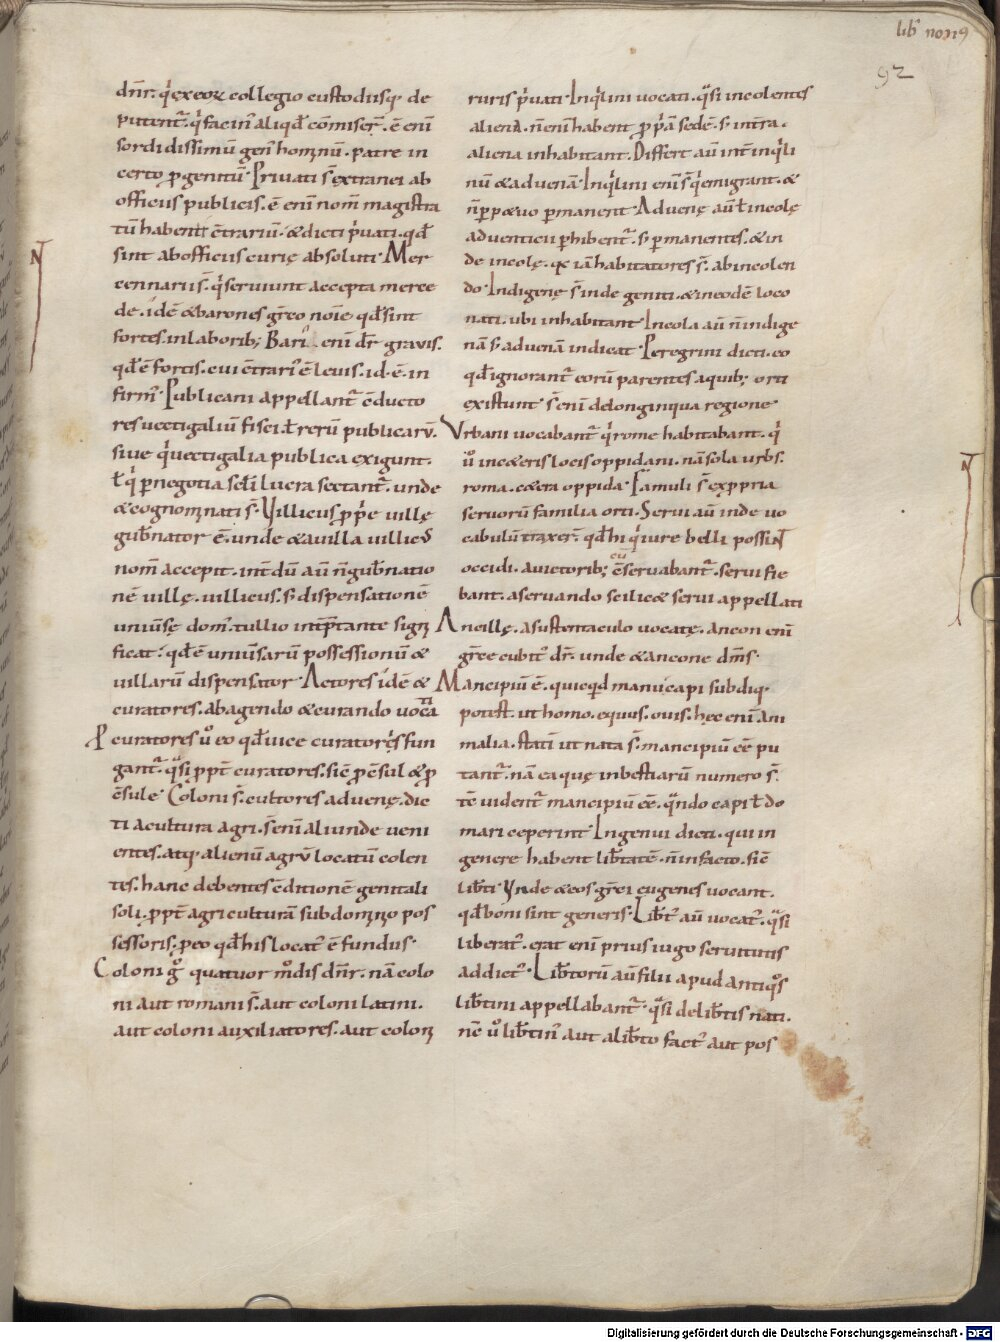 lib̅ non9
92
dn̅r. qͥ ex eoꝝ collegio custodiisq; de
putent᷑. qͥ facin᷑ aliqd̅ com̅iser̅. ē eni̅
sordidissimu̅ gen᷑ homnu̅. patre in
certo ꝓgenitu̅. Privati s̅ extranei ab
officiis publicis. ē eni̅ nom̅ magistra
tu̅ habenti c̅trariu̅. & dicti pͥvati. qd̅
sint ab officiis curię absoluti. Mer
cennarii s̅. qͥ serviunt accepta merce
de. idē & barones gr̅eo noīe qd̅ sint
fortes in laborib;. Bari᷑ eni̅ dr̅ gravis.
qd̅ ē fortis. cui c̅trari᷑ ē levis. id. ē. in
firm᷑. Publicani appellant᷑ c̅ducto
res vectigaliu̅ fisci. ł rerū publicarū.
sive qͥ vectigalia publica exigunt.
ł qͥ ꝑ negotia sc̅li lucra sectant᷑. unde
& cognominati s̅. Villicus ꝓpͥe villę
gub̅nator ē. unde & a villa villic᷑
nom̅ accepit. int̅dū aū n̅ gub̅natio
nē villę. villicus. s; dispensationē
univ̅sę dom᷑. tullio int̅ꝑtante signi
ficat. qd̅ ē univ̅sarū possessionū &
villarū dispensator. Actores idē &
curatores. ab agendo & curando vocati
Pcuratores v̊ eo qd̅ vice curatoris fun
gant᷑. qͣsi ꝓpt̅ curatores. sic̅ ꝓc̅sul & ꝓ
c̅sule. Coloni s̅. cultores advenę. dic
ti a cultura agri. s̅ eni̅ aliunde veni
entes. atq; alienū agrū locatū colen
tes. hanc debentes c̅ditionē genitali
soli. ꝓpt̅ agriculturā sub domino pos
sessoris. ꝓ eo qd̅ his locat᷑ ē fundus.
Coloni g̊ quatuor m̊dis dn̅r. nā colo
ni aut romani s̅. aut coloni latini.
aut coloni auxiliatores. aut coloni
ruris pͥvati. Inqͥlini vocati. qͣsi incolentes
aliena. n̅ eni̅ habent ꝓpͥā sedē. s; in t̅ra.
aliena inhabitant. Differt aū int̅ inqͥli
nū & advenā. Inqͥlini eni̅ s̅ qͥ emigrant. &
n̅ ꝑp&uo ꝑmanent. Advenę aū ł incolę
adventicii ꝑhibent᷑. s; ꝑmanentes. & in
de incolę. qͥ iā habitatores s̅. ab incolen
do. Indigenę s̅ inde geniti. & in eodē loco
nati. ubi inhabitant. Incola aū n̅ indige
nā s; advenā indicat. Peregrini dicti. eo
qd̅ ignorant᷑ eorū parentes a quib; orti
existunt. s̅ eni̅ de longinqua regione.
Urbani vocabant᷑ qͥ rome habitabant. qͥ
v̊ in c&eris locis oppidani. nā sola urbs.
roma. c&era oppida. Famuli s̅ ex ꝓpria
servorū familia orti. Servi aū inde vo
cabulū traxer̅. qd̅ hi qͥ iure belli possint
occidi. a victorib; cū c̅servabant᷑. servi fie
bant. a servando scilic& servi appellati
Ancillę. a sustentaculo vocatę. ancon eni̅
gr̅ce cubit᷑ dr̅. unde & ancone dm̅s.
Mancipiū ē. quicqͥd manu capi subdiq;
potest. ut homo. equus. ovis. hęc eni̅ ani
malia. statī ut nata s̅. mancipiū ēē pu
tant᷑. nā ea quę in bestiarū numero s̅.
tē vident᷑ mancipiū ēē. qͣndo capi ł do
mari ceperint. Ingenui dicti. qui in
genere habent lib̅tatē. n̅ in facto. sic̅
lib̅ti. Unde & eos gr̅ci eugenes vocant.
qd̅ boni sint generis. Lib̅t᷑ aū vocat᷑. qͣsi
liberat᷑. erat eni̅ prius iugo servitutis
addict᷑. Lib̅torū aū filii apud antiqͦs
lib̅tini appellabant᷑. qͣsi de lib̅tis nati.
nc̅ v̊ lib̅tin᷑ aut a lib̅to fact᷑ aut pos
Digitalisierung gefördert durch die Deutsche Forschungsgemeinschaft - DFG